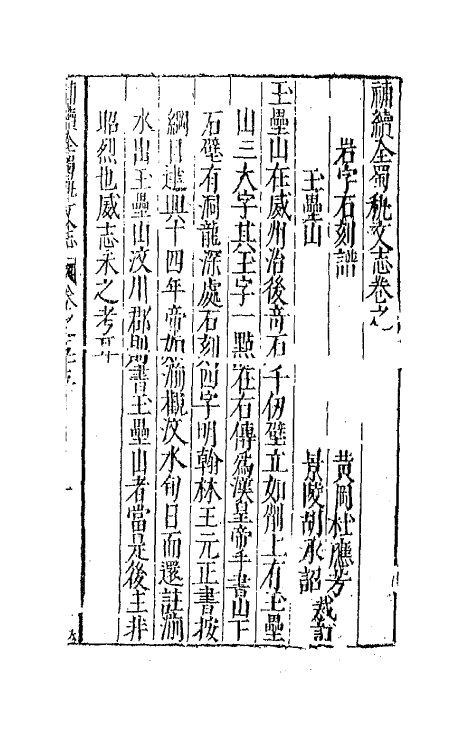 補續全蜀秇文志卷之
黃岡杜應芳
岩字石刻譜
景陵胡承詔
裁訂
玉壘山
玉壘山在威州治後竒石千仞壁立如削上有玉壘
山三大字其玉字一點在右傳爲漢皇帝手書山下
石壁有洞龍深處石刻四字明翰林王元正書按
綱目建興十四年帝如湔觀汶水旬日而還註湔
水出玉壘山汶川郡則書玉壘山者當是後主非
昭烈也威志未之考耳
補續全蜀秇文志